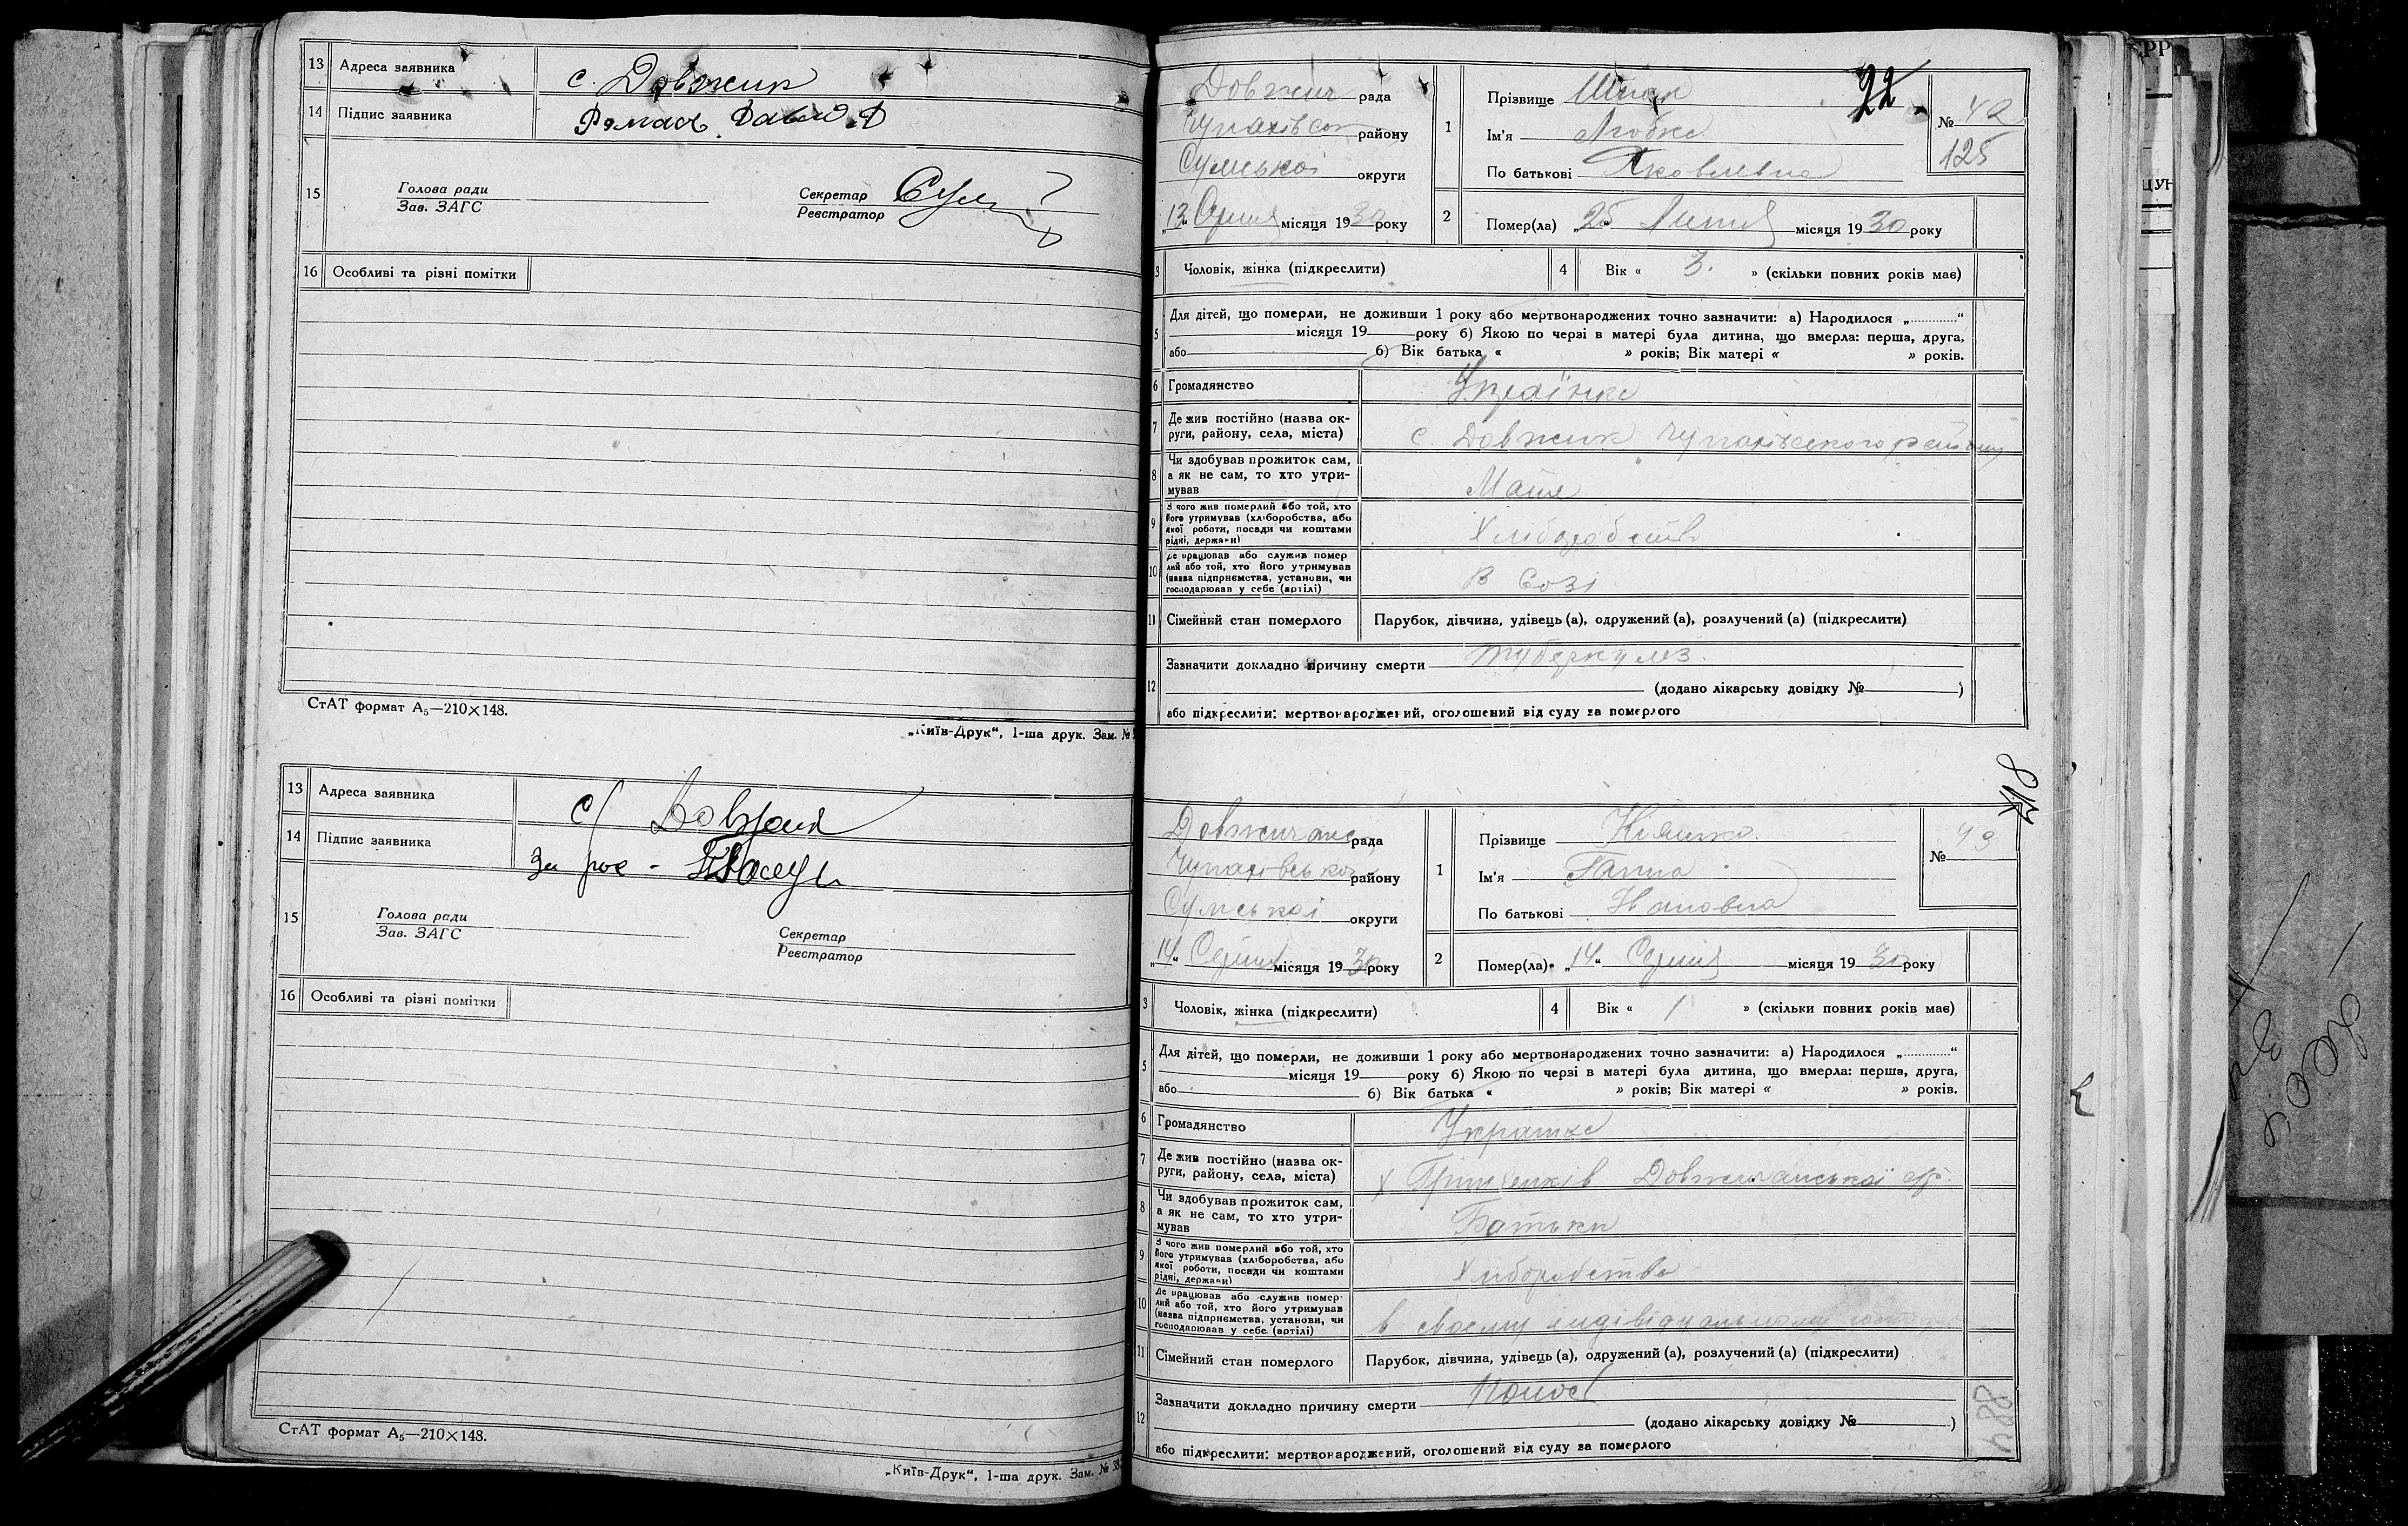 13 Адреса заявника с. Довжик
14 Підпис заявника
15 Голова ради
Зав. ЗАГС
Секретар
Реєстратор
16 Особливі та різні помітки
СтАТ формат А₅—210×148.
„Київ-Друк“, 1-ша друк. Зам. №
13 Адреса заявника с/
14 Підпис заявника
15 Голова ради
Зав. ЗАГС
Секретар
Реєстратор
16 Особливі та різні помітки
СтАТ формат А₅—210×148.
„Київ-Друк“, 1-ша друк. Зам. № 38
22
Довжич рада
району
Сумської округи
„13“ Серпня місяця 1930 року
1 Прізвище Шпак
Ім'я Любка
По батькові Яковлевна
№ 42
125
2 Помер(ла) „25“ Липня місяця 1930 року
3 Чоловік, жінка (підкреслити)
4 Вік « 3. » (скільки повних років має)
5 Для дітей, що померли, не доживши 1 року або мертвонароджених точно зазначити: а) Народилося „............“
місяця 19 року б) Якою по черзі в матері була дитина, що вмерла: перша, друга,
або б) Вік батька « » років; Вік матері « » років.
6 Громадянство Українка
7 Де жив постійно (назва ок-
руги, району, села, міста) с. Довжик Чупахівського району
8 Чи здобував прожиток сам,
а як не сам, то хто утри-
мував Мати
9 З чого жив померлий або той, хто
його утримував (хліборобства, або
якої роботи, посади чи коштами
рідні, держави) Хліборобство
10 Де працював або служив помер
лий або той, хто його утримував
(назва підприємства, установи, чи
господарював у себе (артілі) В Созі
11 Сімейний стан померлого Парубок, дівчина, удівець (а), одружений (а), розлучений (а) (підкреслити)
12 Зазначити докладно причину смерти туберкульоз.
(додано лікарську довідку № )
або підкреслити: мертвонароджений, оголошений від суду за померлого
Довжичанс рада
Чупахівської району
Сумської округи
„14“ Серпня місяця 1930 року
1 Прізвище
Ім'я Ганна
По батькові
№ 43
2 Помер(ла) „14“ Серпня місяця 1930 року
3 Чоловік, жінка (підкреслити)
4 Вік « 1 » (скільки повних років має)
5 Для дітей, що померли, не доживши 1 року або мертвонароджених точно зазначити: а) Народилося „............“
місяця 19 року б) Якою по черзі в матері була дитина, що вмерла: перша, друга,
або б) Вік батька « » років; Вік матері « » років.
6 Громадянство Українка
7 Де жив постійно (назва ок-
руги, району, села, міста) х Грінченків Довжичанської с/р.
8 Чи здобував прожиток сам,
а як не сам, то хто утри-
мував Батьки
9 З чого жив померлий або той, хто
його утримував (хліборобства, або
якої роботи, посади чи коштами
рідні, держави) Хліборобство
10 Де працював або служив помер-
лий або той, хто його утримував
(назва підприємства, установи, чи
господарював у себе (артілі) в своєму індівідуальному
11 Сімейний стан померлого Парубок, дівчина, удівець (а), одружений (а), розлучений (а) (підкреслити)
12 Зазначити докладно причину смерти Понос
(додано лікарську довідку № )
або підкреслити: мертвонароджений, оголошений від суду за померлого